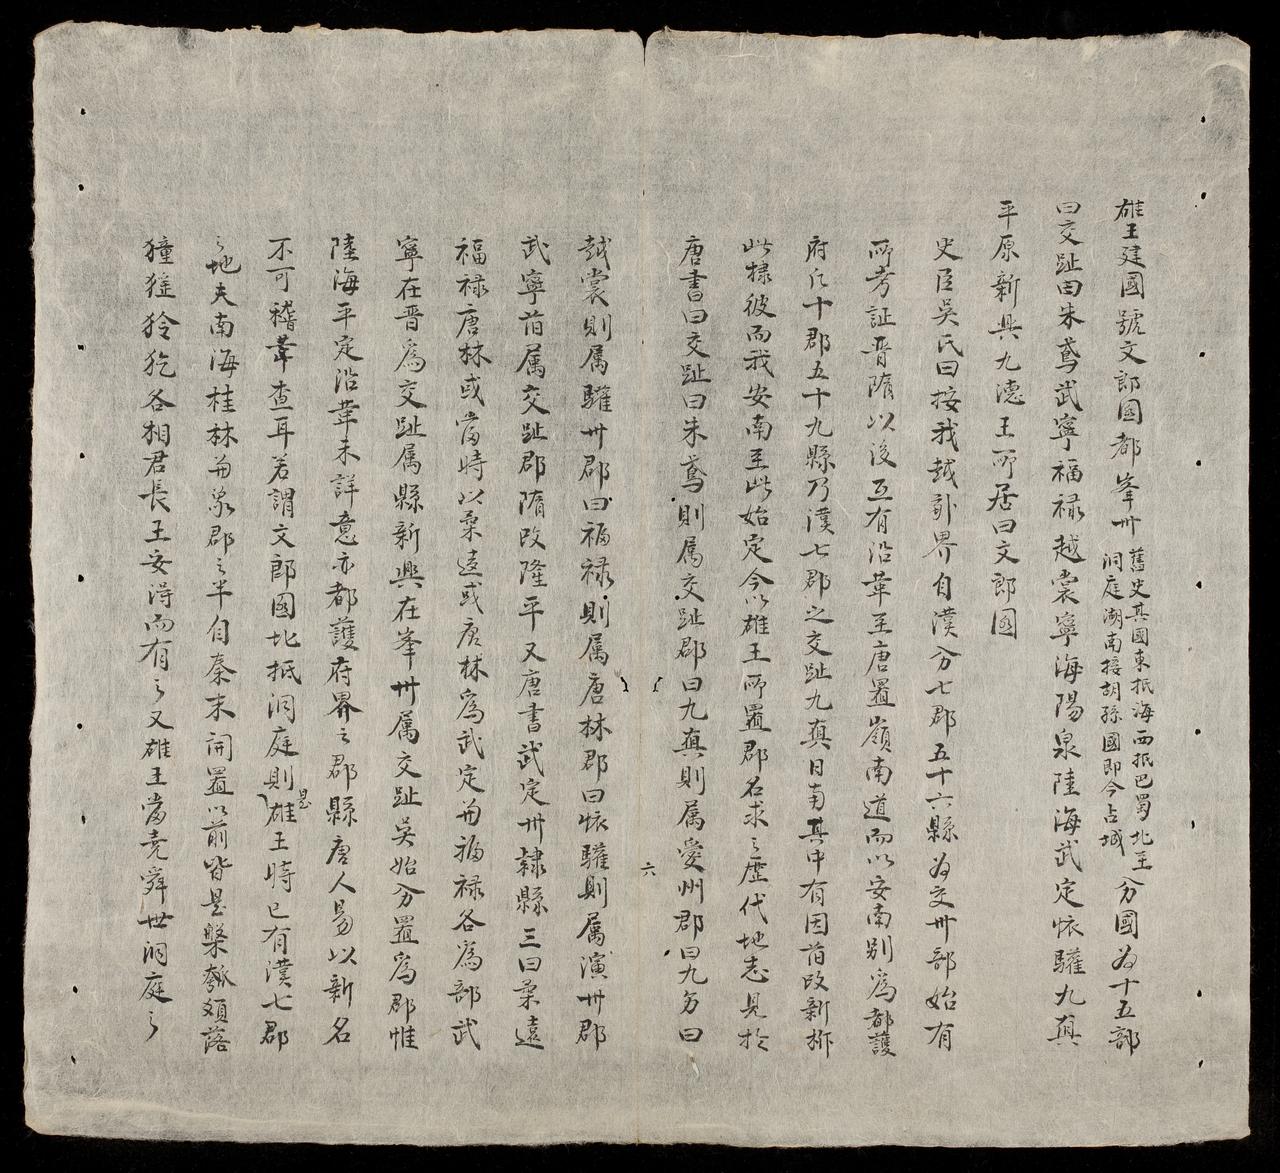 雄王建國號文郎國都峯州舊史其國東抵海西抵巴蜀北至洞庭湖南接胡孫國即今占城分國為十五部
曰交趾曰朱鳶武寧福禄越裳寧海陽泉陸海武定懷驩九真
平原新興九德王所居曰文郎國
史臣吳氏曰按我越引界自漢分七郡五十六縣為交州部始有
所考証晋隋以後互有沿革至唐置嶺南道而以安南别為都護
府凡十郡五十九縣乃漢七郡之交趾九真日南其中有因舊改新柝
此隸彼而我安南至此始定今以雄王所置郡名求之歷代地志見於
唐書曰交趾曰朱鳶則属交趾郡曰九真則属愛州郡曰九 曰
六
越裳則属驩州郡曰福禄則属唐林郡曰懷驩則属演州郡
武寧前属交趾郡隋改隆平又唐書武定州隸縣三曰柔遠
福禄唐林或當時以柔遠或唐林為武定而福禄各為部武
寧在晋為交趾属縣新興在峯州属交趾吳始分置為郡惟
陸海平定沿革未詳意亦都護府界之郡縣唐人易以新名
不可稽 查耳若謂文郎國北抵洞庭則是雄王時已有漢七郡
之地夫南海桂林而象郡之半自秦末開置以前皆是槃瓠 落
獞猺狑犵各相君長王安得而有之又雄王當堯舜世洞庭之